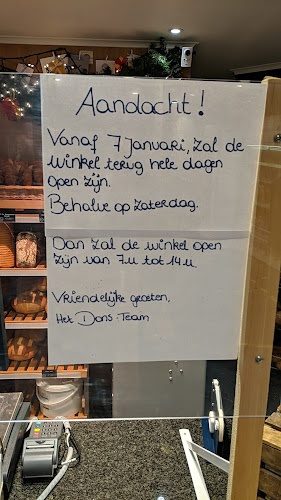 Aandacht!
Vanaf 7 Januari, zal de
winkel terug hele dagen
open zijn.
Behalve op zaterdag.
Dan zal de winkel open
zijn van 7u tot 14u.
Vriendelijke groeten,
Het Dons-Team